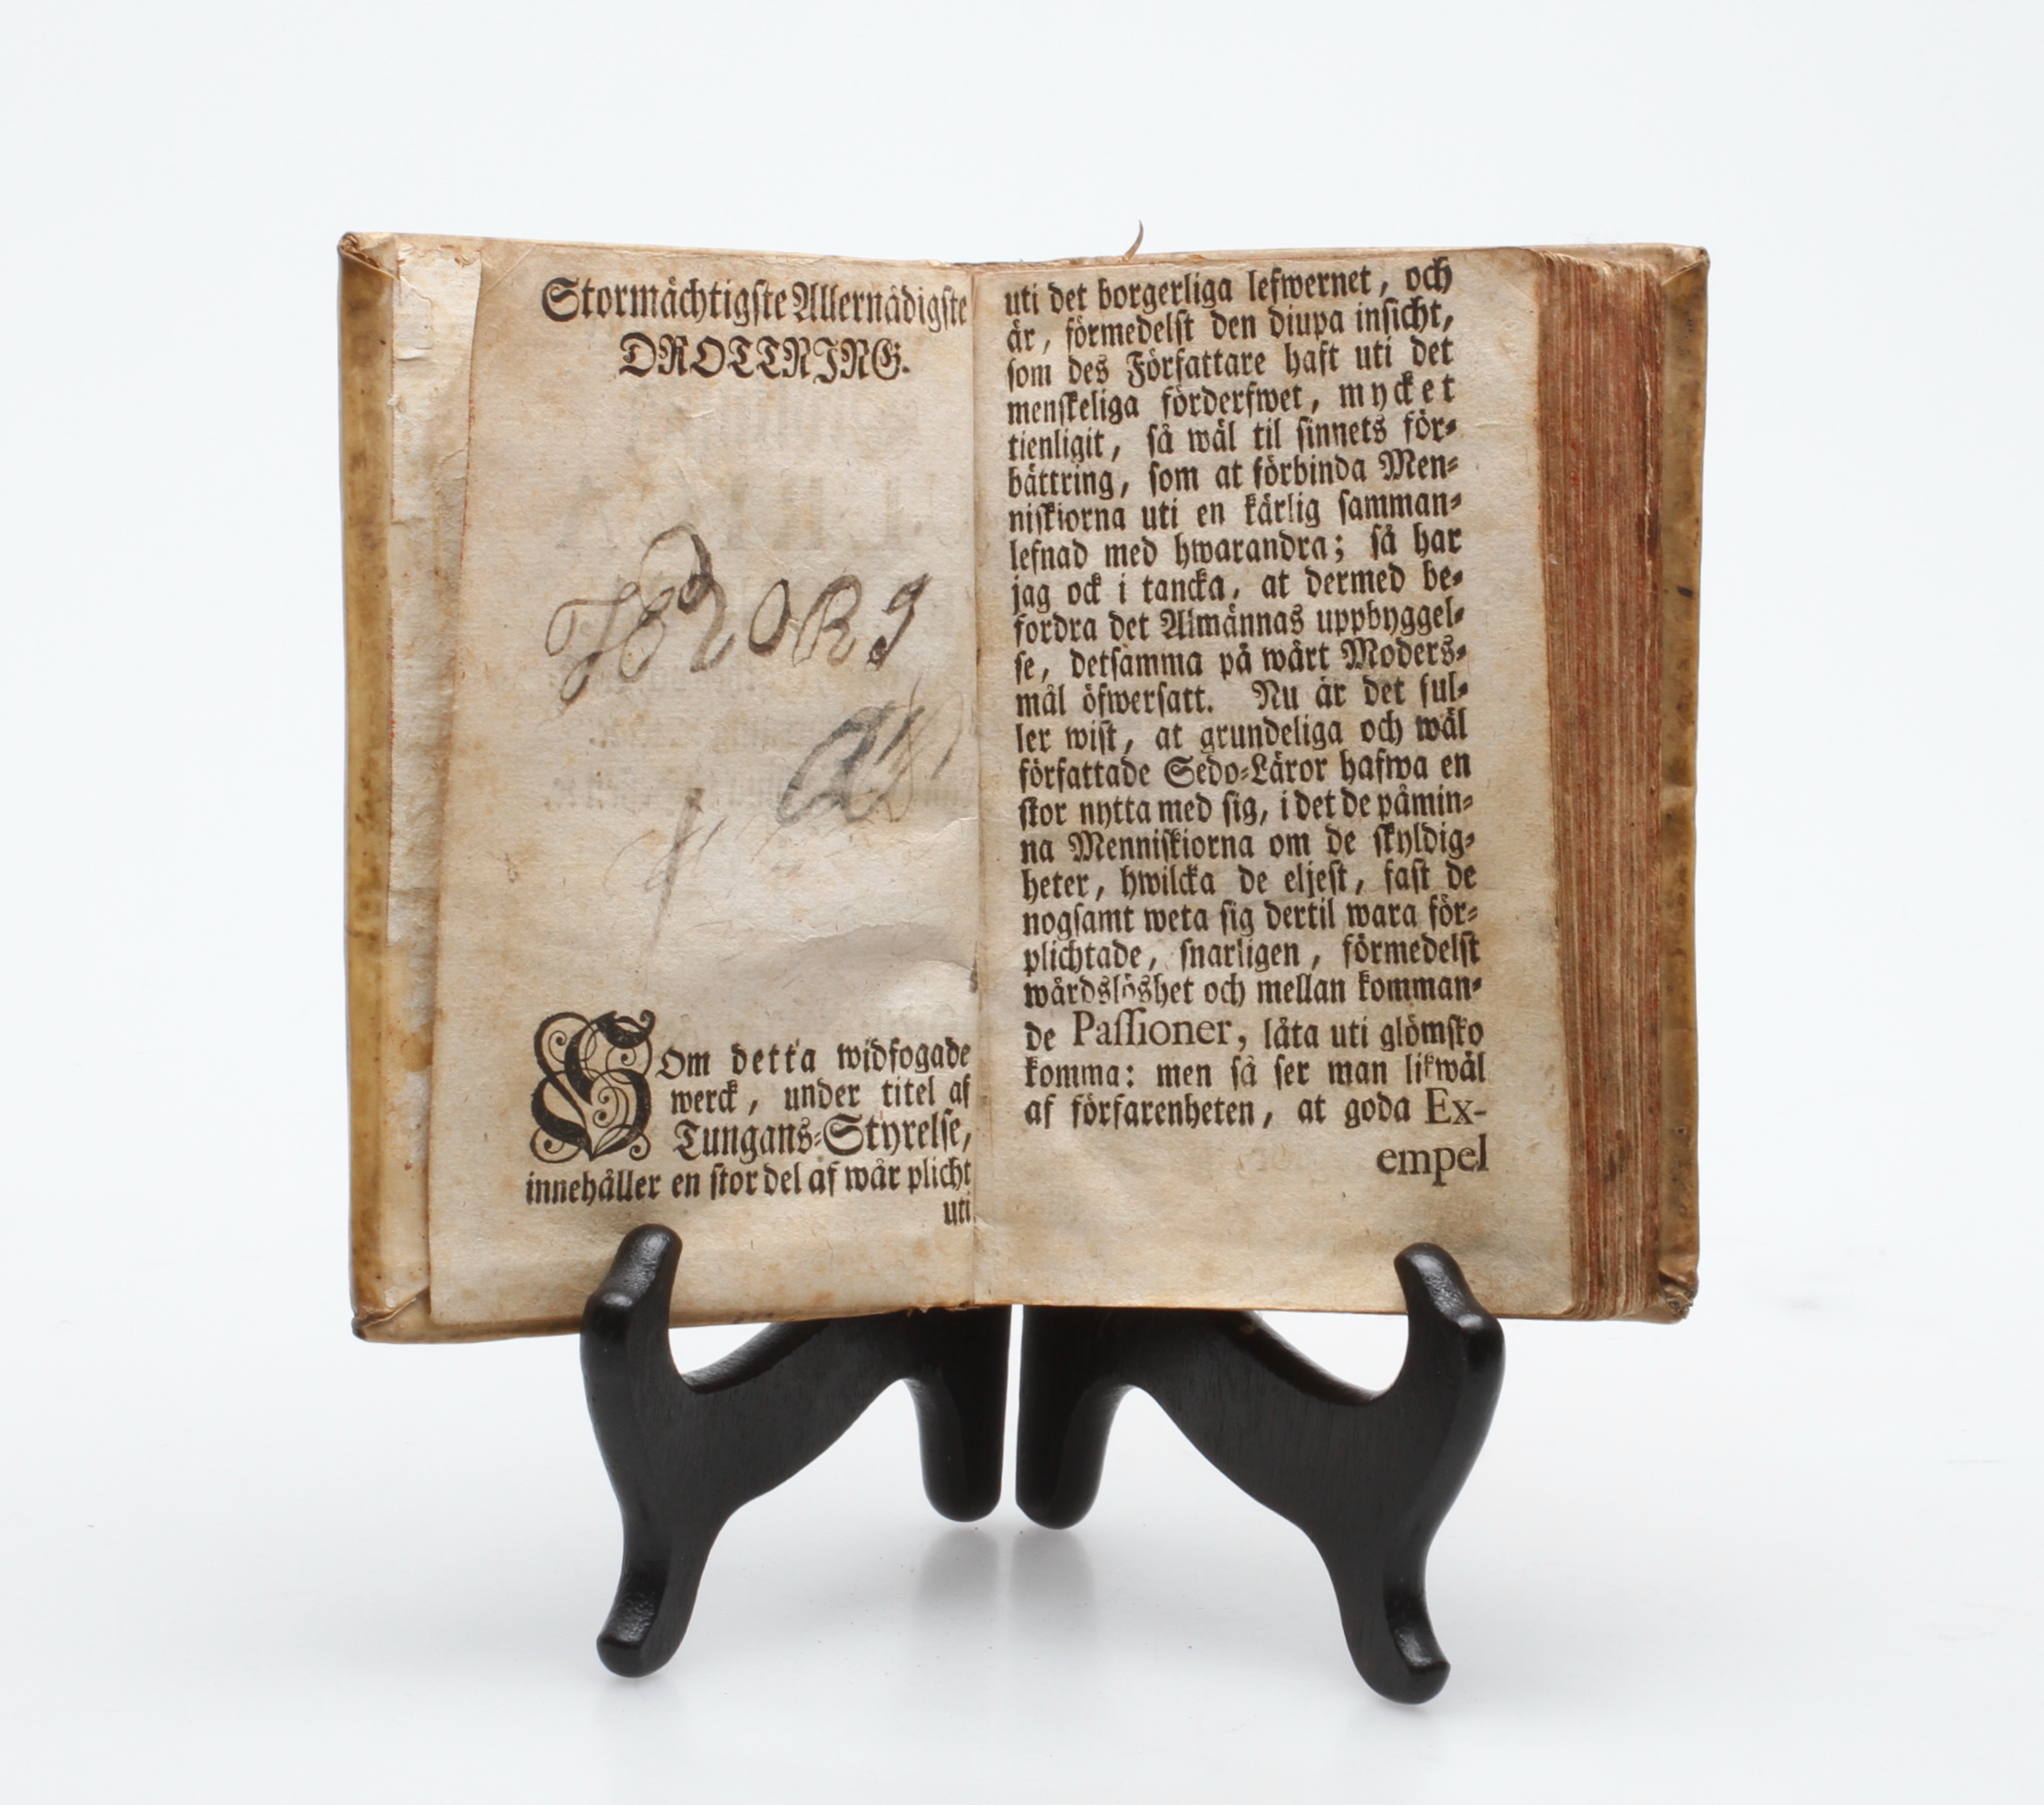 Stormächtigste Allernådigste
DROTTNING.
SOm detta widfogade
werck, under titel af
Tungans-Styrelse,
innehåller en stor del af wår plicht
uti
uti det borgerliga lefwernet, och
är, förmedelst den diupa insicht,
som des Författare haft uti det
menskeliga förderfwet, mycket
tienligit, så wäl til sinnets för-
bättring, som at förbinda Men-
niskiorna uti en kärlig samman-
lefnad med hwarandra; så har
jag ock i tancka, at dermed be-
fordra det Almännas uppbyggel-
se, detsamma på wårt Moders-
mål öfwersatt. Nu är det ful-
ler wist, at grundeliga och wäl
författade Sedo-Läror hafwa en
stor nytta med sig, i det de påmin-
na Menniskiorna om de skyldig-
heter, hwilcka de eljest, fast de
nogsamt weta sig dertil wara för-
plichtade, snarligen, förmedelst
wårdslöshet och mellan komman-
de Passioner, låta uti glömsko
komma: men så ser man likwäl
af förfarenheten, at goda Ex-
empel